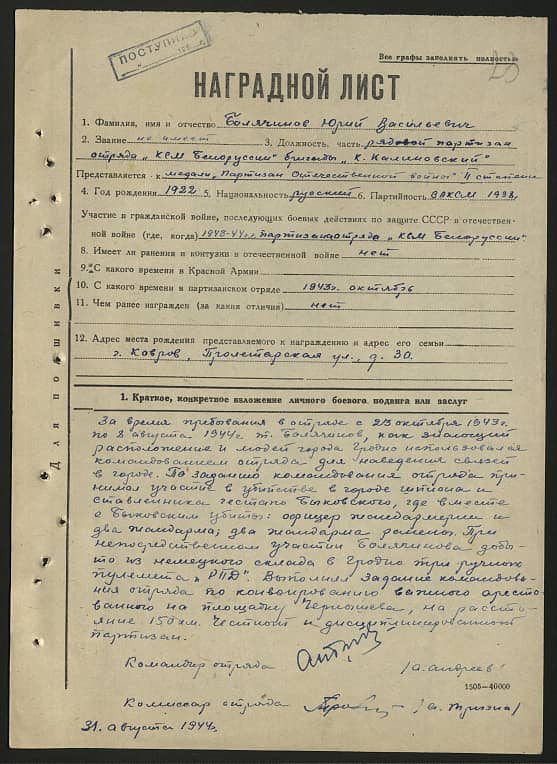 ПОСТУПИЛО
Все графы заполнять полностью
23
НАГРАДНОЙ ЛИСТ
1. Фамилия, имя и отчество Болячинов Юрий Васильевич
2. Звание не имеет 3. Должность, часть рядовой партизан
отряда „КСМ Белоруссии" бригады „К. Калиновский"
Представляется к медали „Партизан Отечественной войны" II степени
4. Год рождения 1922 5. Национальность русский 6. Партийность ВЛКСМ 1938г
Участие в гражданской войне, последующих боевых действиях по защите СССР в отечествен-
ной войне (где, когда) 1943-44г.г. партизан отряда „КСМ Белоруссии"
8. Имеет ли ранения и контузии в отечественной войне нет
9. С какого времени в Красной Армии
10. С какого времени в партизанском отряде 1943г. октябрь
11. Чем ранее награжден (за какия отличия) нет
12. Адрес места рождения представляемого к награждению и адрес его семьи
г. Ковров, Пролетарская ул., д. 30.
Для подшивки
1. Краткое, конкретное изложение личного боевого подвига или заслуг
За время пребывания в отряде с 25 октября 1943г.
по 8 августа 1944г т. Болячинов, как знающий
расположение и людей города Гродно использовался
командованием отряда для наведения связей
в городе. По заданию командования отряда при-
нимал участие в убийстве в городе шпиона и
ставленника гестапо Быковского, где вместе
с Быковским убиты: офицер жандармерии и
два жандарма; два жандарма ранено. При
непосредственном участии Болячинова добы-
то из немецкого склада в Гродно три ручных
пулемета „РПД". Выполнял задание командова-
ния отряда по конвоированию важного аресто-
ванного на площадку Чернышева, на расстоя-
ние 150 км. Честный и дисциплинированный
партизан.
Командир отряда /А. Андреев/
1505—40000
Комиссар отряда /А. Тризна/
31 августа 1944г.